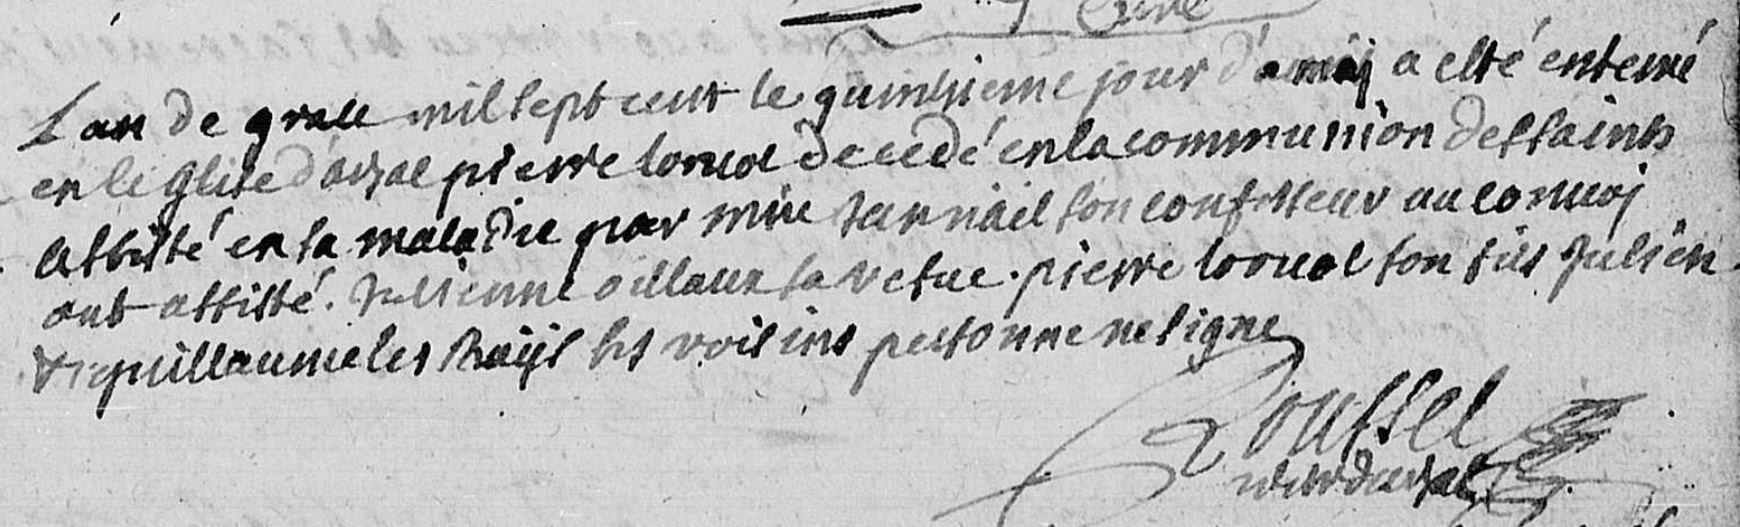 Curé
L'an de grace mil sept cent le quinzieme jour de maij a esté enterré
en leglise d'arzal pierre lorvol decedé en la communion des saints
assisté en sa maladie par mire son confesseur au convoj
ont assisté. Julienne oillaux sa vefue. pierre lorvol son fils Julien
& guillaume les voisins personne ne signe
Roussel
recteur d'arzal